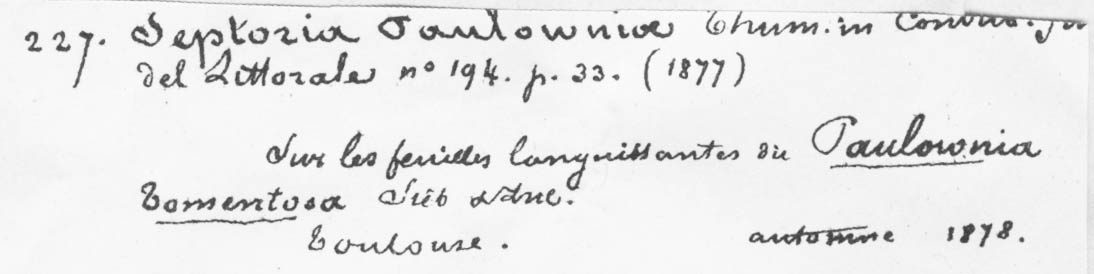 227. Septoria Paulowniae Thum. in Contrib.
del Littorale nº 194. p. 33. (1877)
Sur les feuilles languissantes du Paulownia
tomentosa Sieb
Toulouse. automne 1878.